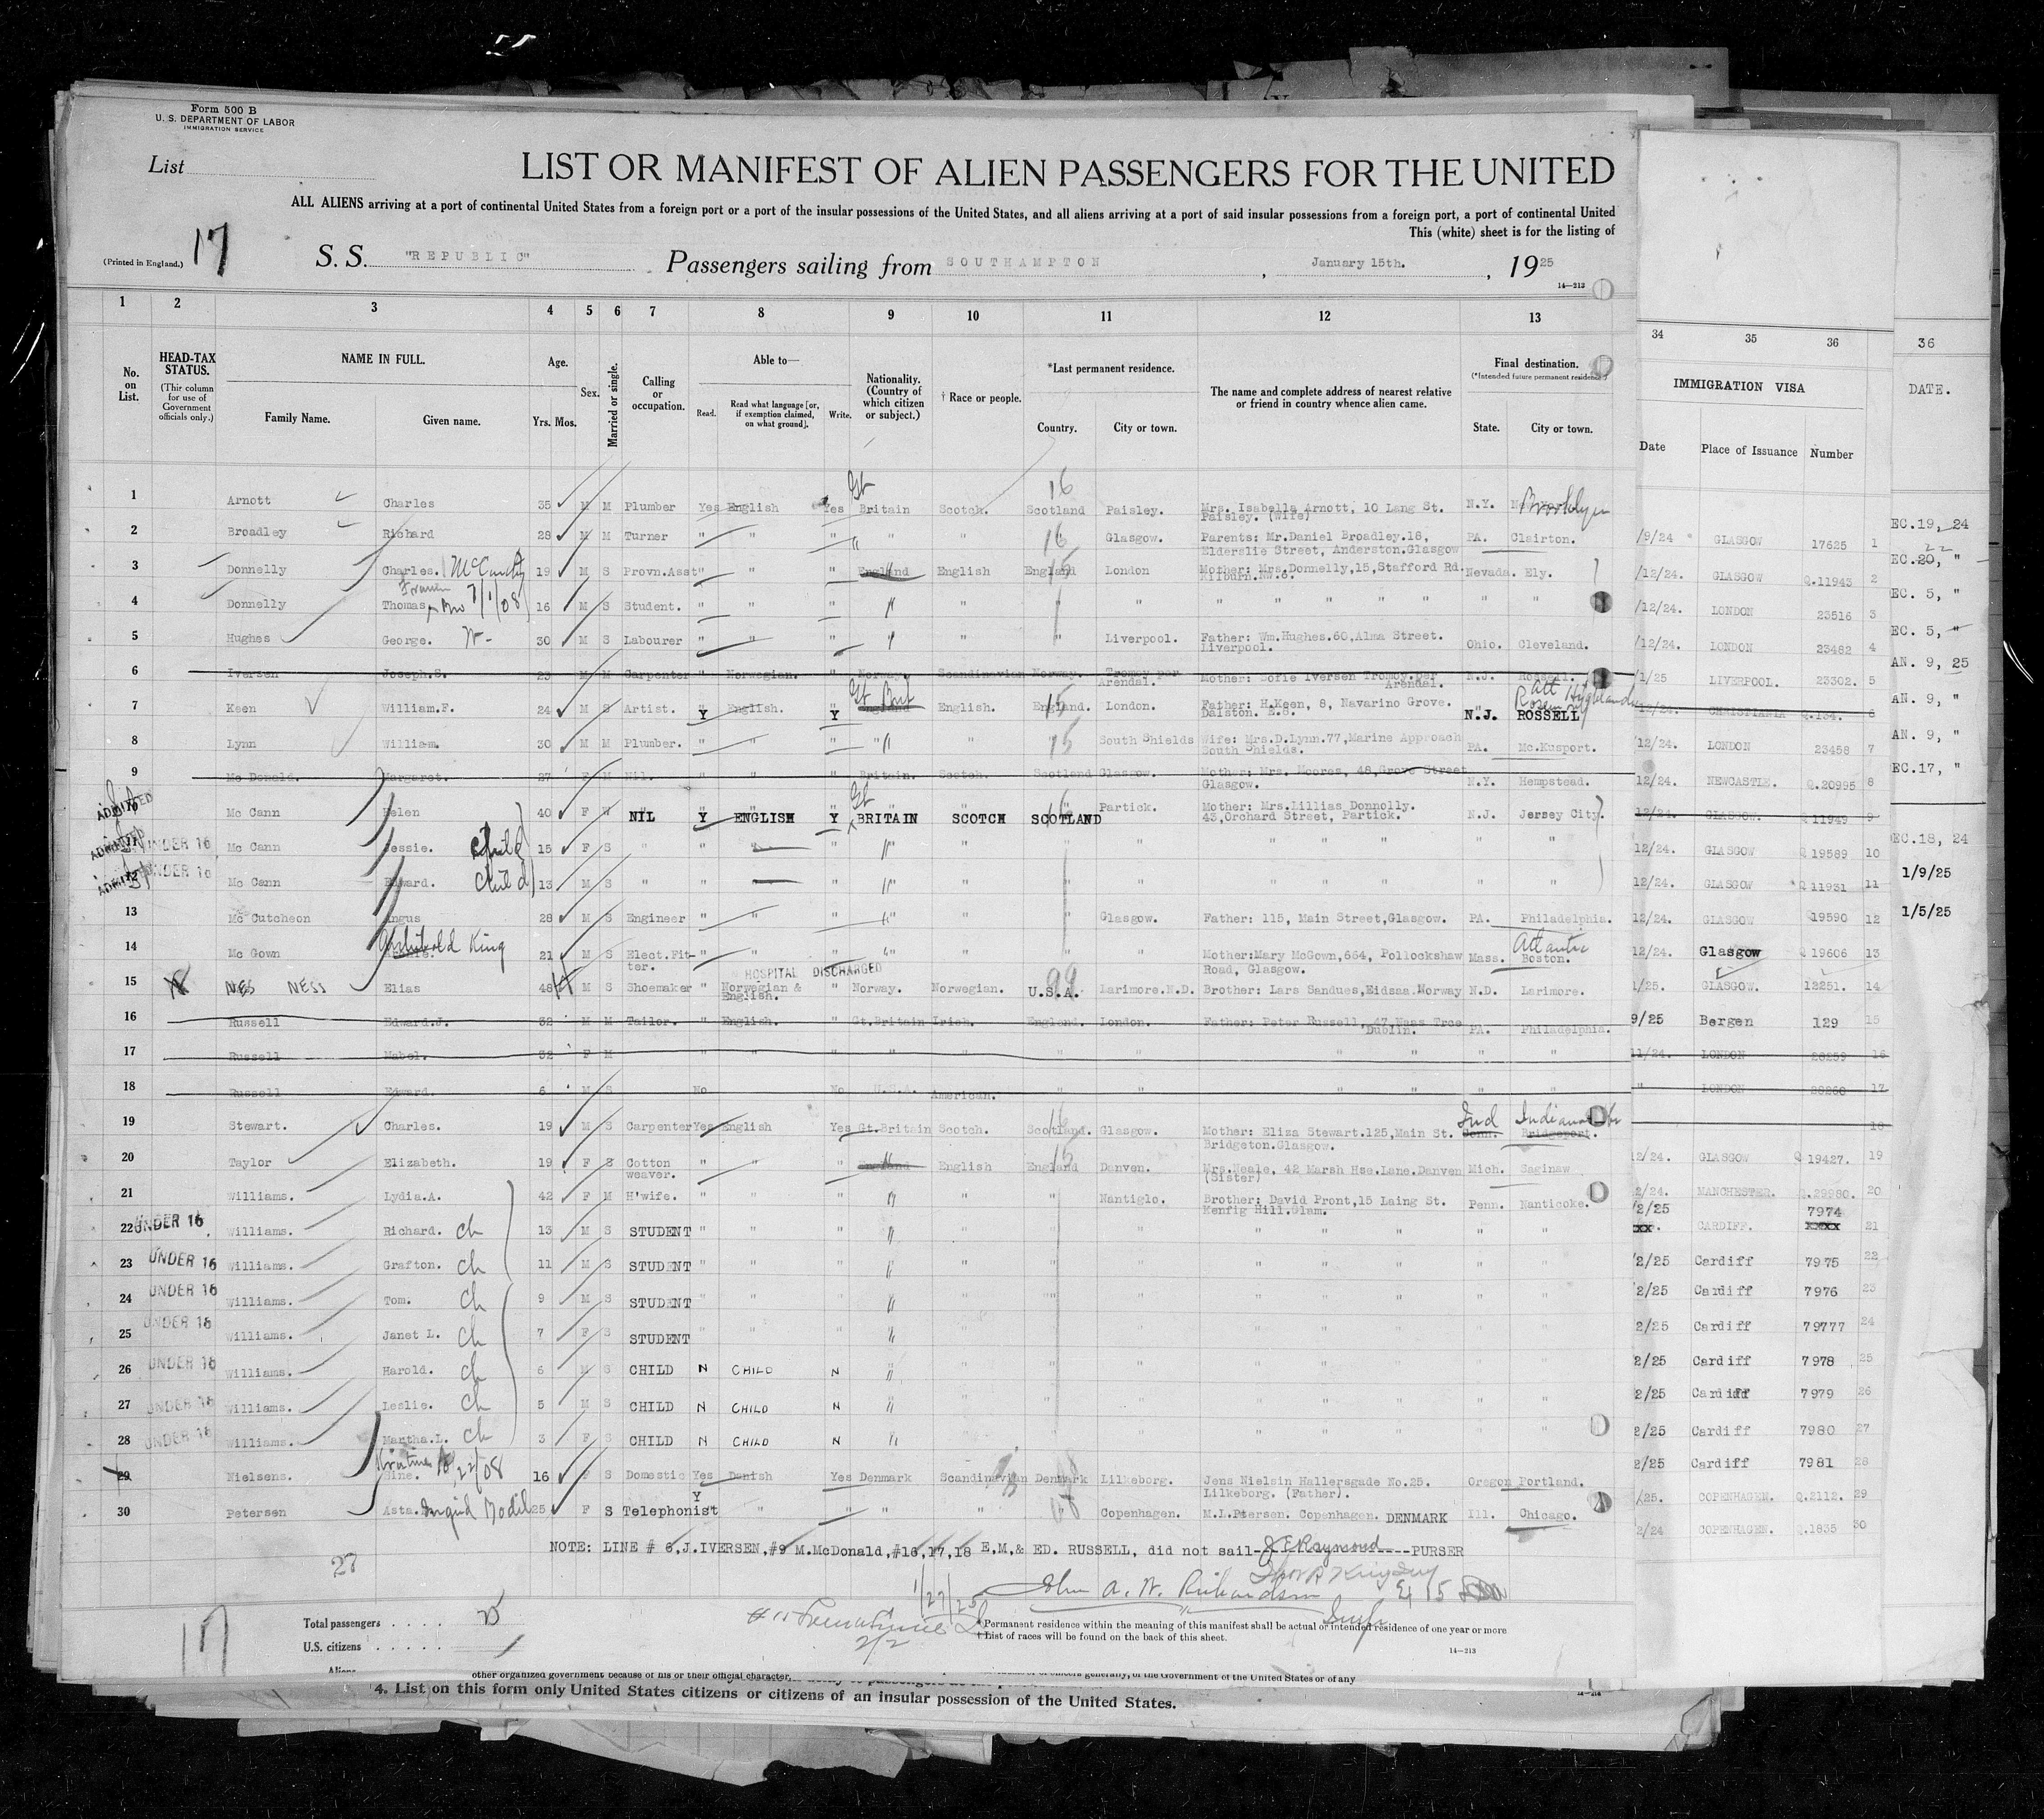 Form 500 B
U. S. DEPARTMENT OF LABOR
IMMIGRATION SERVICE
List
LIST OR MANIFEST OF ALIEN PASSENGERS FOR THE UNITED
ALL ALIENS arriving at a port of continental United States from a foreign port or a port of the insular possessions of the United States, and all aliens arriving at a port of said insular possessions from a foreign port, a port of continental United
This (white) sheet is for the listing of
(Printed in England.) 17 S. S. "REPUBLIC" Passengers sailing from SOUTHAMPTON, January 15th., 1925
14—213
1 2 3 4 5 6 7 8 9 10 11 12 13 34 35 36 36
No. on List. HEAD-TAX STATUS. (Thir column for use of Government officials only.) NAME IN FULL. Family Name. Given name. Age. Yrs. Mos. Sex. Married or single. Calling or occupation. Able to— Read. Read what language [or, if exemption claimed, on what ground]. Write. Nationality. (Country of which citizen or subject.) † Race or people. *Last permanent residence. Country. City or town. The name and complete address of nearest relative or friend in country whence alien came. Final destination. (*Intended future permanent residence) State. City or town. IMMIGRATION VISA Date Place of Issuance Number DATE.
1 Arnott Charles 35 M M Plumber Yes English Yes Gt Britain Scotch. 16 Scotland Paisley. Mrs. Isabella Arnott, 10 Lang St. Paisley. (Wife) N.Y. Brooklyn EC.19, 24
2 Broadley Richard 28 M M Turner " " " " " 16 " Glasgow. Parents: Mr.Daniel Broadley.18, Elderslie Street, Anderston.Glasgow PA. Clairton. /9/24 GLASGOW 17625 1 EC.20, 22 "
3 Donnelly Charles. McCaudy 19 M S Provn.Asst " " " England English England London Mother: Mrs.Donnelly,15,Stafford Rd. Kilburn.NW.6. Nevada. Ely. /12/24. GLASGOW Q.11943 2 EC. 5, "
4 Donnelly Thomas 7/1/08 16 M S Student. " " " " " " " " " " " " /12/24. LONDON 23516 3 EC. 5, "
5 Hughes George. W- 30 M S Labourer " " " " " " Liverpool. Father: Wm.Hughes.60,Alma Street. Liverpool. Ohio. Cleveland. /12/24. LONDON 23482 4 AN. 9, 25
6 Iversen Joseph.S. 23 M M Carpenter " Norwegian. " Norway Scandinavian Norway. Tromoy per Arendal. Mother: Sofie Iversen Tromoy.per Arendal. N.J. Rossell. /1/25 LIVERPOOL. 23302. 5 AN. 9, "
7 Keen William.F. 24 M S Artist. Y English. Y Gt Brit England English. 15 England. London. Father: H.Keen, 8, Navarino Grove. Dalston. E.8. N.J. ROSSELL Att Highlands /12/24. CHRISTIANIA Q.134. 6 AN. 9, "
8 Lynn William. 30 M M Plumber. " " " " " 15 South Shields Wife: Mrs.D.Lynn.77,Marine Approach South Shields. PA. Mc.Kusport. /12/24. LONDON 23458 7 EC.17, "
9 Mc Donald. Margaret. 27 F M Nil. " " " Britain. Scotch. Scotland Glasgow. Mother: Mrs. Moores, 48,Grove Street Glasgow. N.Y. Hempstead. 12/24. NEWCASTLE. Q.20995 8
ADMITTED Mc Cann Helen 40 F W NIL Y ENGLISH Y Gt BRITAIN SCOTCH 16 SCOTLAND Partick. Mother: Mrs.Lillias Donnolly. 43,Orchard Street, Partick. N.J. Jersey City. 12/24. GLASGOW. Q 11949 9 EC.18, 24
ADMITTED UNDER 16 Mc Cann Jessie. Child 15 F S " " " " " " " " " " " 12/24. GLASGOW Q 19589 10 1/9/25
ADMITTED UNDER 16 Mc Cann Edward. Child 13 M S " " " " " " " " " " " 12/24. GLASGOW Q 11931 11 1/5/25
13 Mc Cutcheon Angus 28 M S Engineer " " " " " " Glasgow. Father: 115, Main Street,Glasgow. PA. Philadelphia. 12/24. GLASGOW Q19590 12
14 Mc Gown Archie. Archibald King 21 M S Elect.Fitter. " " " " " " " Mother:Mary McGown,664, Pollockshaw Road, Glasgow. Mass. Atlantic Boston. 12/24. Glasgow Q 19606 13
HOSPITAL DISCHARGED
15 NES NESS Elias 48 M S Shoemaker " Norwegian & English. " Norway. Norwegian. 99 U.S.A. Larimore.N.D. Brother: Lars Sandues,Eidsaa.Norway N.D. Larimore. 1/25. GLASGOW. 12251. 14
16 Russell Edward.J. 32 M M Tailor. " English. " Gt.Britain Irish. England. London. Father: Peter Russell, 47,Naas Trce Dublin. PA. Philadelphia. 9/25 Bergen 129 15
17 Russell Mabel. 32 F M " " " " " " " " " " " 11/24. LONDON 28259 16
18 Russell Edward. 6 M S No No U.S.A. American. " " " " " " " LONDON 28260 17
19 Stewart. Charles. 19 M S Carpenter Yes English Yes Gt.Britain Scotch. 16 Scotland. Glasgow. Mother: Eliza Stewart.125,Main St. Bridgeton.Glasgow. Ind Conn. Bridgeport. 18
20 Taylor Elizabeth. 19 F S Cotton weaver. " " " England English 15 England Danven. Mrs.Neale, 42 Marsh Hse.Lane.Danven (Sister) Mich. Saginaw 12/24. GLASGOW Q 19427. 19
21 Williams. Lydia.A. 42 F M H'wife. " " " " " " Nantiglo. Brother: David Pront,15 Laing St. Kenfig Hill.Glam. Penn. Nanticoke. 2/24. MANCHESTER. Q.29980. 20
22 UNDER 16 Williams. Richard. Ch 13 M S STUDENT " " " " " " " " " " " 2/25 xx. CARDIFF. 7974 xxxx 21
23 UNDER 16 Williams. Grafton. Ch 11 M S STUDENT " " " " " " " " " " " 2/25 Cardiff 7975 22
24 UNDER 16 Williams. Tom. Ch 9 M S STUDENT " " " " " " " " " " " /2/25 Cardiff 7976 23
25 UNDER 16 Williams. Janet L. Ch 7 F S STUDENT " " " " " " " " " " " 2/25 Cardiff 79777 24
26 UNDER 16 Williams. Harold. Ch 6 M S CHILD N CHILD N " " " " " " " " 2/25 Cardiff 7978 25
27 UNDER 16 Williams. Leslie. Ch 5 M S CHILD N CHILD N " " " " " " " " 2/25 Cardiff 7979 26
28 UNDER 16 Williams. Martha.L. Ch 3 F S CHILD N CHILD N " " " " " " " " 2/25 Cardiff 7980 27
29 Nielsens. Sine. Kristine 22/08 16 F S Domestic Yes Danish Yes Denmark Scandinavian Denmark Lilkeborg. Jens Nielsin Hallersgade No.25. Lilkeborg. (Father). Oregon Portland. 2/25 Cardiff 7981 28
30 Petersen Asta. Ingrid Bodil 25 F S Telephonist Y " " " " " 68 Copenhagen. M.L.Ptersen. Copenhagen. DENMARK Ill. Chicago. /25. COPENHAGEN. Q.2112. 29
2/24 COPENHAGEN. Q.1835 30
NOTE: LINE # 6,J.IVERSEN,#9 M.McDonald,#16,17,18 E,M,& ED. RUSSELL, did not sail- J E Raymond ----PURSER
27
1/27/25 John A. W. Richardson
17 Total passengers 25
2/2
U.S. citizens
Aliens
* Permanent residence within the meaning of this manifest shall be actual or intended residence of one year or more
† List of races will be found on the back of this sheet.
14—213
other organized government because of his or their official character,
officers generally, of the Government of the United States or of any
4. List on this form only United States citizens or citizens of an insular possession of the United States.
14—214